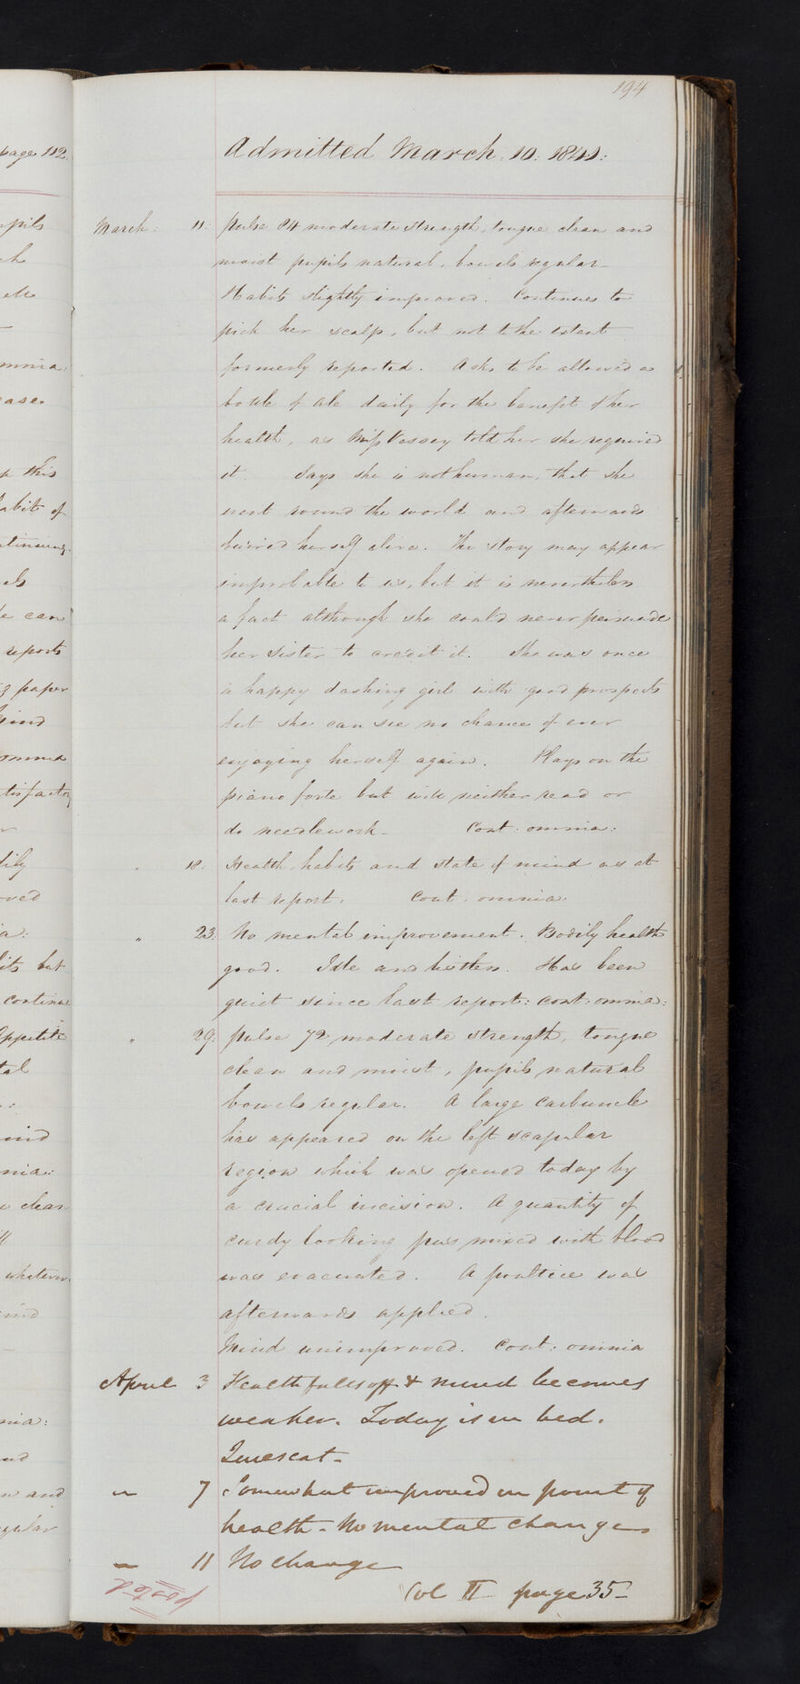 194
Admitted March. 10. 1841:
March. 11. Pulse 84 moderate strength, tongue clean and
moist pupils natural, bowels regular.
Habits slightly improved. Continues to
pick her scalp, but not to the extent
formerly reported. Asks to be allowed a
bottle of ale daily for the benefit of her
health, as Miss Vessey told her she required
it. Says she is not human, that she
went round the world and afterwards
buried herself alive. The story may appear
improbable to us, but it is nevertheless
a fact although she could never persuade
her sister to credit it. She was once
a happy dashing girl with good prospects
but she can see no chance of ever
enjoying herself again. Plays on the
piano forte but will neither read or
do needlework. Cont: omnia:
" 18. Health, habits and state of mind as at
last report. Cont. omnia.
" 23. No mental improvement. Bodily health
good. Idle and listless. Has been
quiet since last report: cont: omnia:
" 29. Pulse 72 moderate strength, tongue
clean and moist, pupils natural
bowels regular. A large carbuncle
has appeared on the left scapular
region which was opened today by
a crucial incision. A quantity of
curdy looking pus mixed with blood
was evacuated. A poultice was
afterwards applied.
Mind unimproved. Cont: omnia
April 3 Health falls off & mind becomes
weaker. Today is in bed.
Quiescat.
" 7 Somewhat improved in point of
health. No mental change
" 11 No change
Vol II page 35
page 112